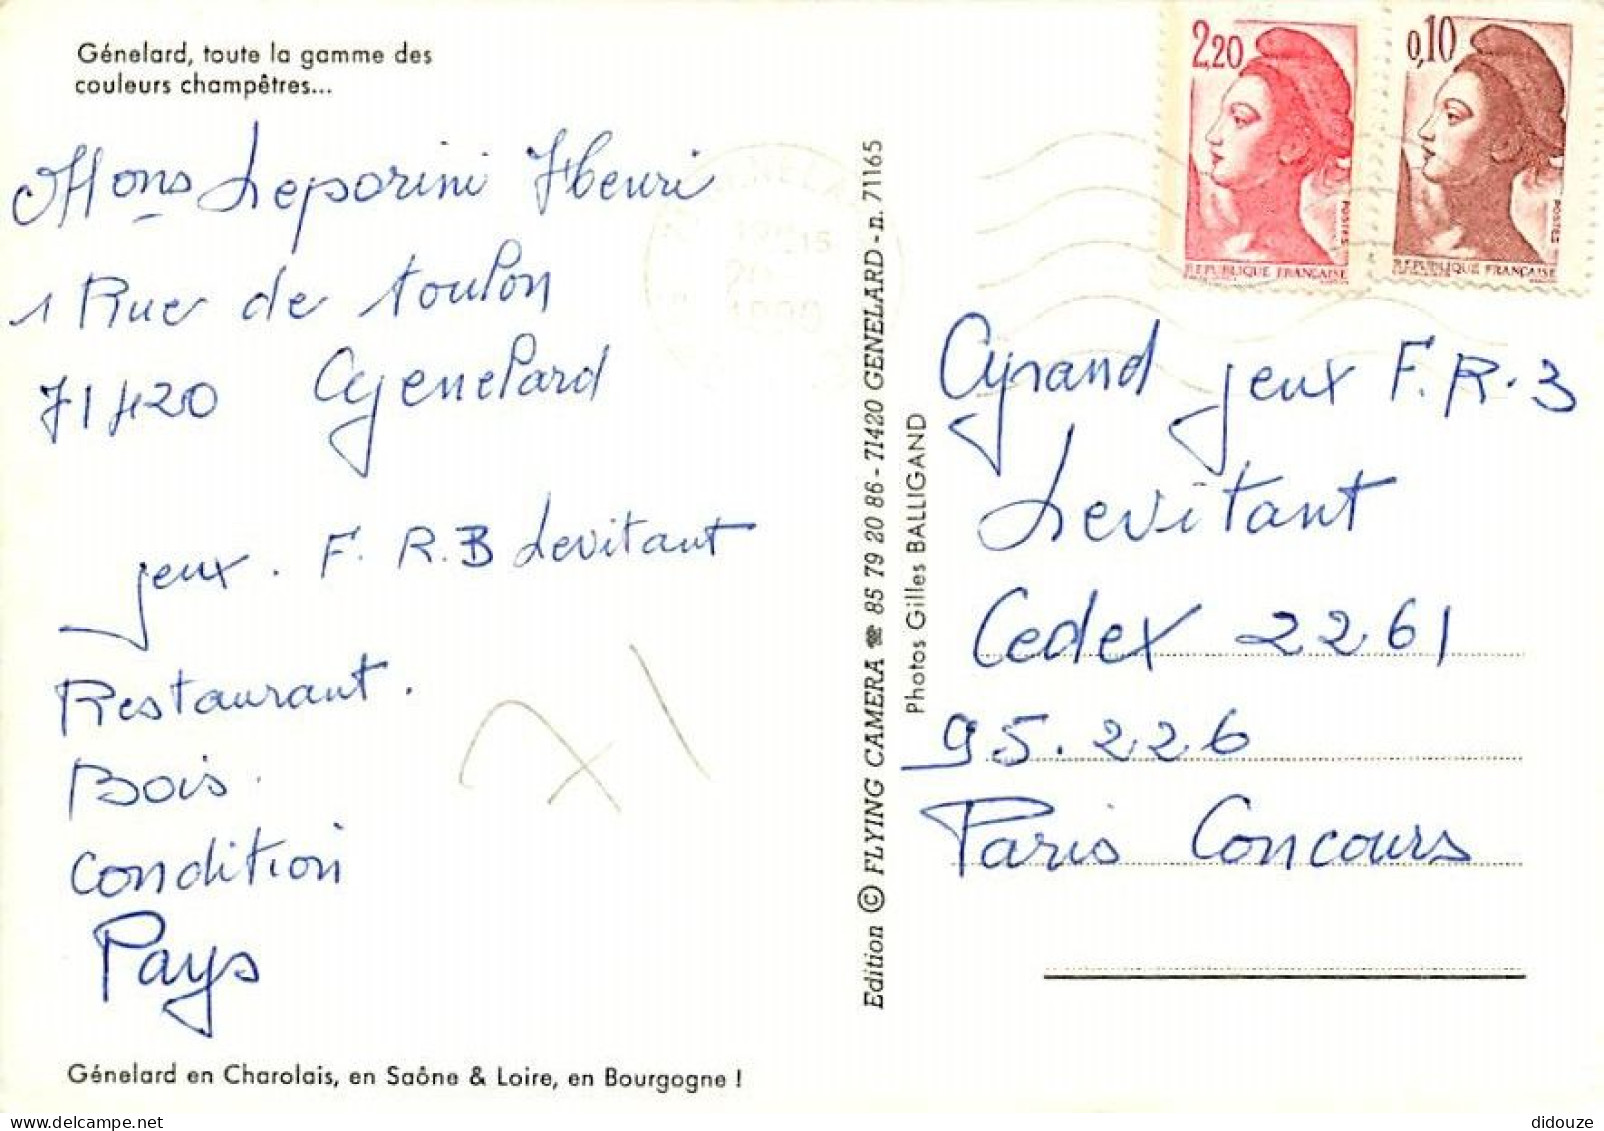 Génelard, toute la gamme des
couleurs champêtres...
Mons Leporini Henri
1 Rue de toulon
71420 Genelard
jeux. F. R.3 Levitant
Restaurant.
Bois.
Condition
Pays
71
Génelard en Charolais, en Saône & Loire, en Bourgogne !
Edition © FLYING CAMERA ☎ 85 79 20 86 - 71420 GENELARD - n. 71165
Photos Gilles BALLIGAND
2,20
REPUBLIQUE FRANÇAISE
POSTES
0,10
REPUBLIQUE FRANÇAISE
POSTES
Grand jeux F.R.3
Levitant
Cedex 2261
95.226
Paris Concours
didouze